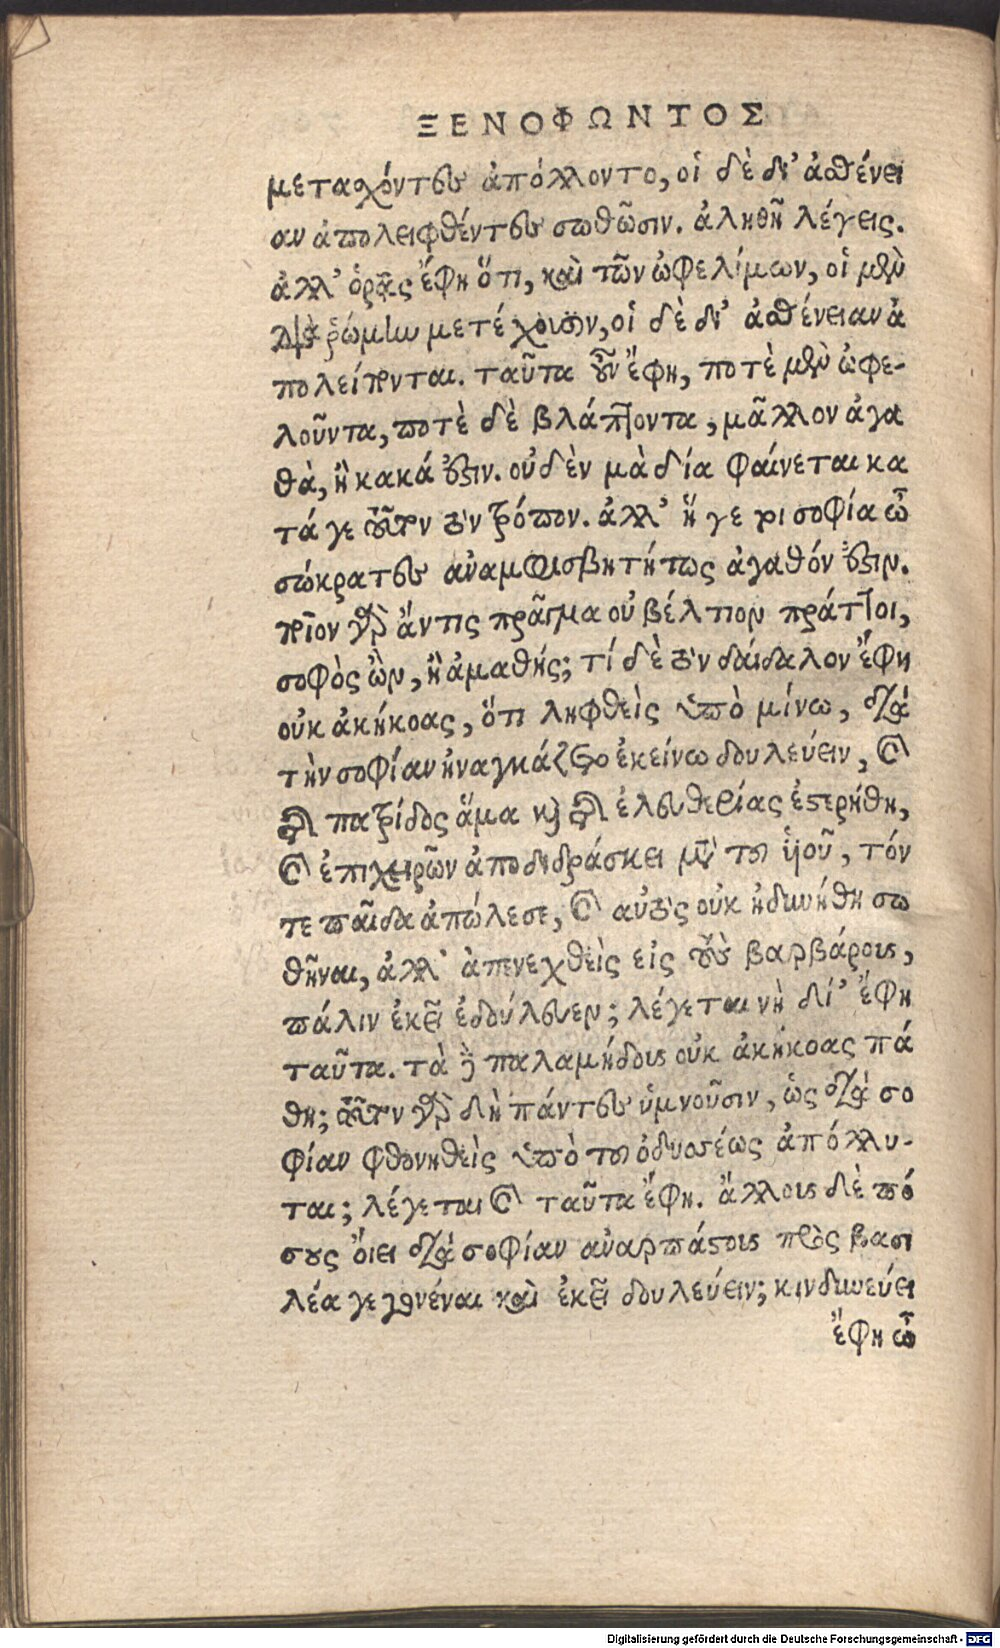 ΞΕΝΟΦΩΝΤΟΣ
μεταχόντες ἀπόλλοντο, οἱ δὲ δι’ ἀσθένει
αν ἀπολειφθέντες σωθῶσιν. ἀληθῆ λέγεις.
ἀλλ’ ὁρᾷς ἔφη ὅτι, καὶ τῶν ὠφελίμων, οἱ μὲν
διὰ ῥώμην μετέχουσιν, οἱ δὲ δι’ ἀσθένειαν ἀ
πολείπονται. ταῦτα οὖν ἔφη, ποτὲ μὲν ὠφε-
λοῦντα, ποτὲ δὲ βλάπτοντα, μᾶλλον ἀγα
θὰ, ἢ κακά ἐστιν. οὐδὲν μὰ δία φαίνεται κα
τά γε τοῦτον τὸν τρόπον. ἀλλ’ ἥ γέ τοι σοφία ὦ
σώκρατες ἀναμφισβητήτως ἀγαθόν ἐστιν.
ποῖον γὰρ ἄν τις πρᾶγμα οὐ βέλτιον πράττοι,
σοφὸς ὢν, ἢ ἀμαθής; τί δὲ τὸν δαίδαλον ἔφη
οὐκ ἀκήκοας, ὅτι ληφθεὶς ὑπὸ μίνω, διὰ
τὴν σοφίαν ἠναγκάζετο ἐκείνω δουλεύειν, καὶ
τῆς πατρίδος ἅμα καὶ τῆς ἐλευθερίας ἐστερήθη,
καὶ ἐπιχειρῶν ἀποδιδράσκει μετὰ τοῦ ἱοῦ, τόν
τε παῖδα ἀπώλεσε, καὶ αὐτὸς οὐκ ἠδυνήθη σω
θῆναι, ἀλλ’ ἀπενεχθεὶς εἰς τοὺς βαρβάρους,
πάλιν ἐκεῖ ἐδούλευεν; λέγεται νὴ δί’ ἔφη
ταῦτα. τὰ δὲ παλαμήδους οὐκ ἀκήκοας πά
θη; τοῦτον γὰρ δὴ πάντες ὑμνοῦσιν, ὡς διὰ σο
φίαν φθονηθεὶς ὑπὸ τοῦ ὀδυσέως ἀπόλλυ-
ται; λέγεται καὶ ταῦτα ἔφη. ἄλλους δὲ πό
σους οἴει διὰ σοφίαν ἀναρπάστους πρὸς βασι
λέα γεγονέναι καὶ ἐκεῖ δουλεύειν; κινδυνεύει
ἔφη ὦ
Digitalisierung gefördert durch die Deutsche Forschungsgemeinschaft - DFG